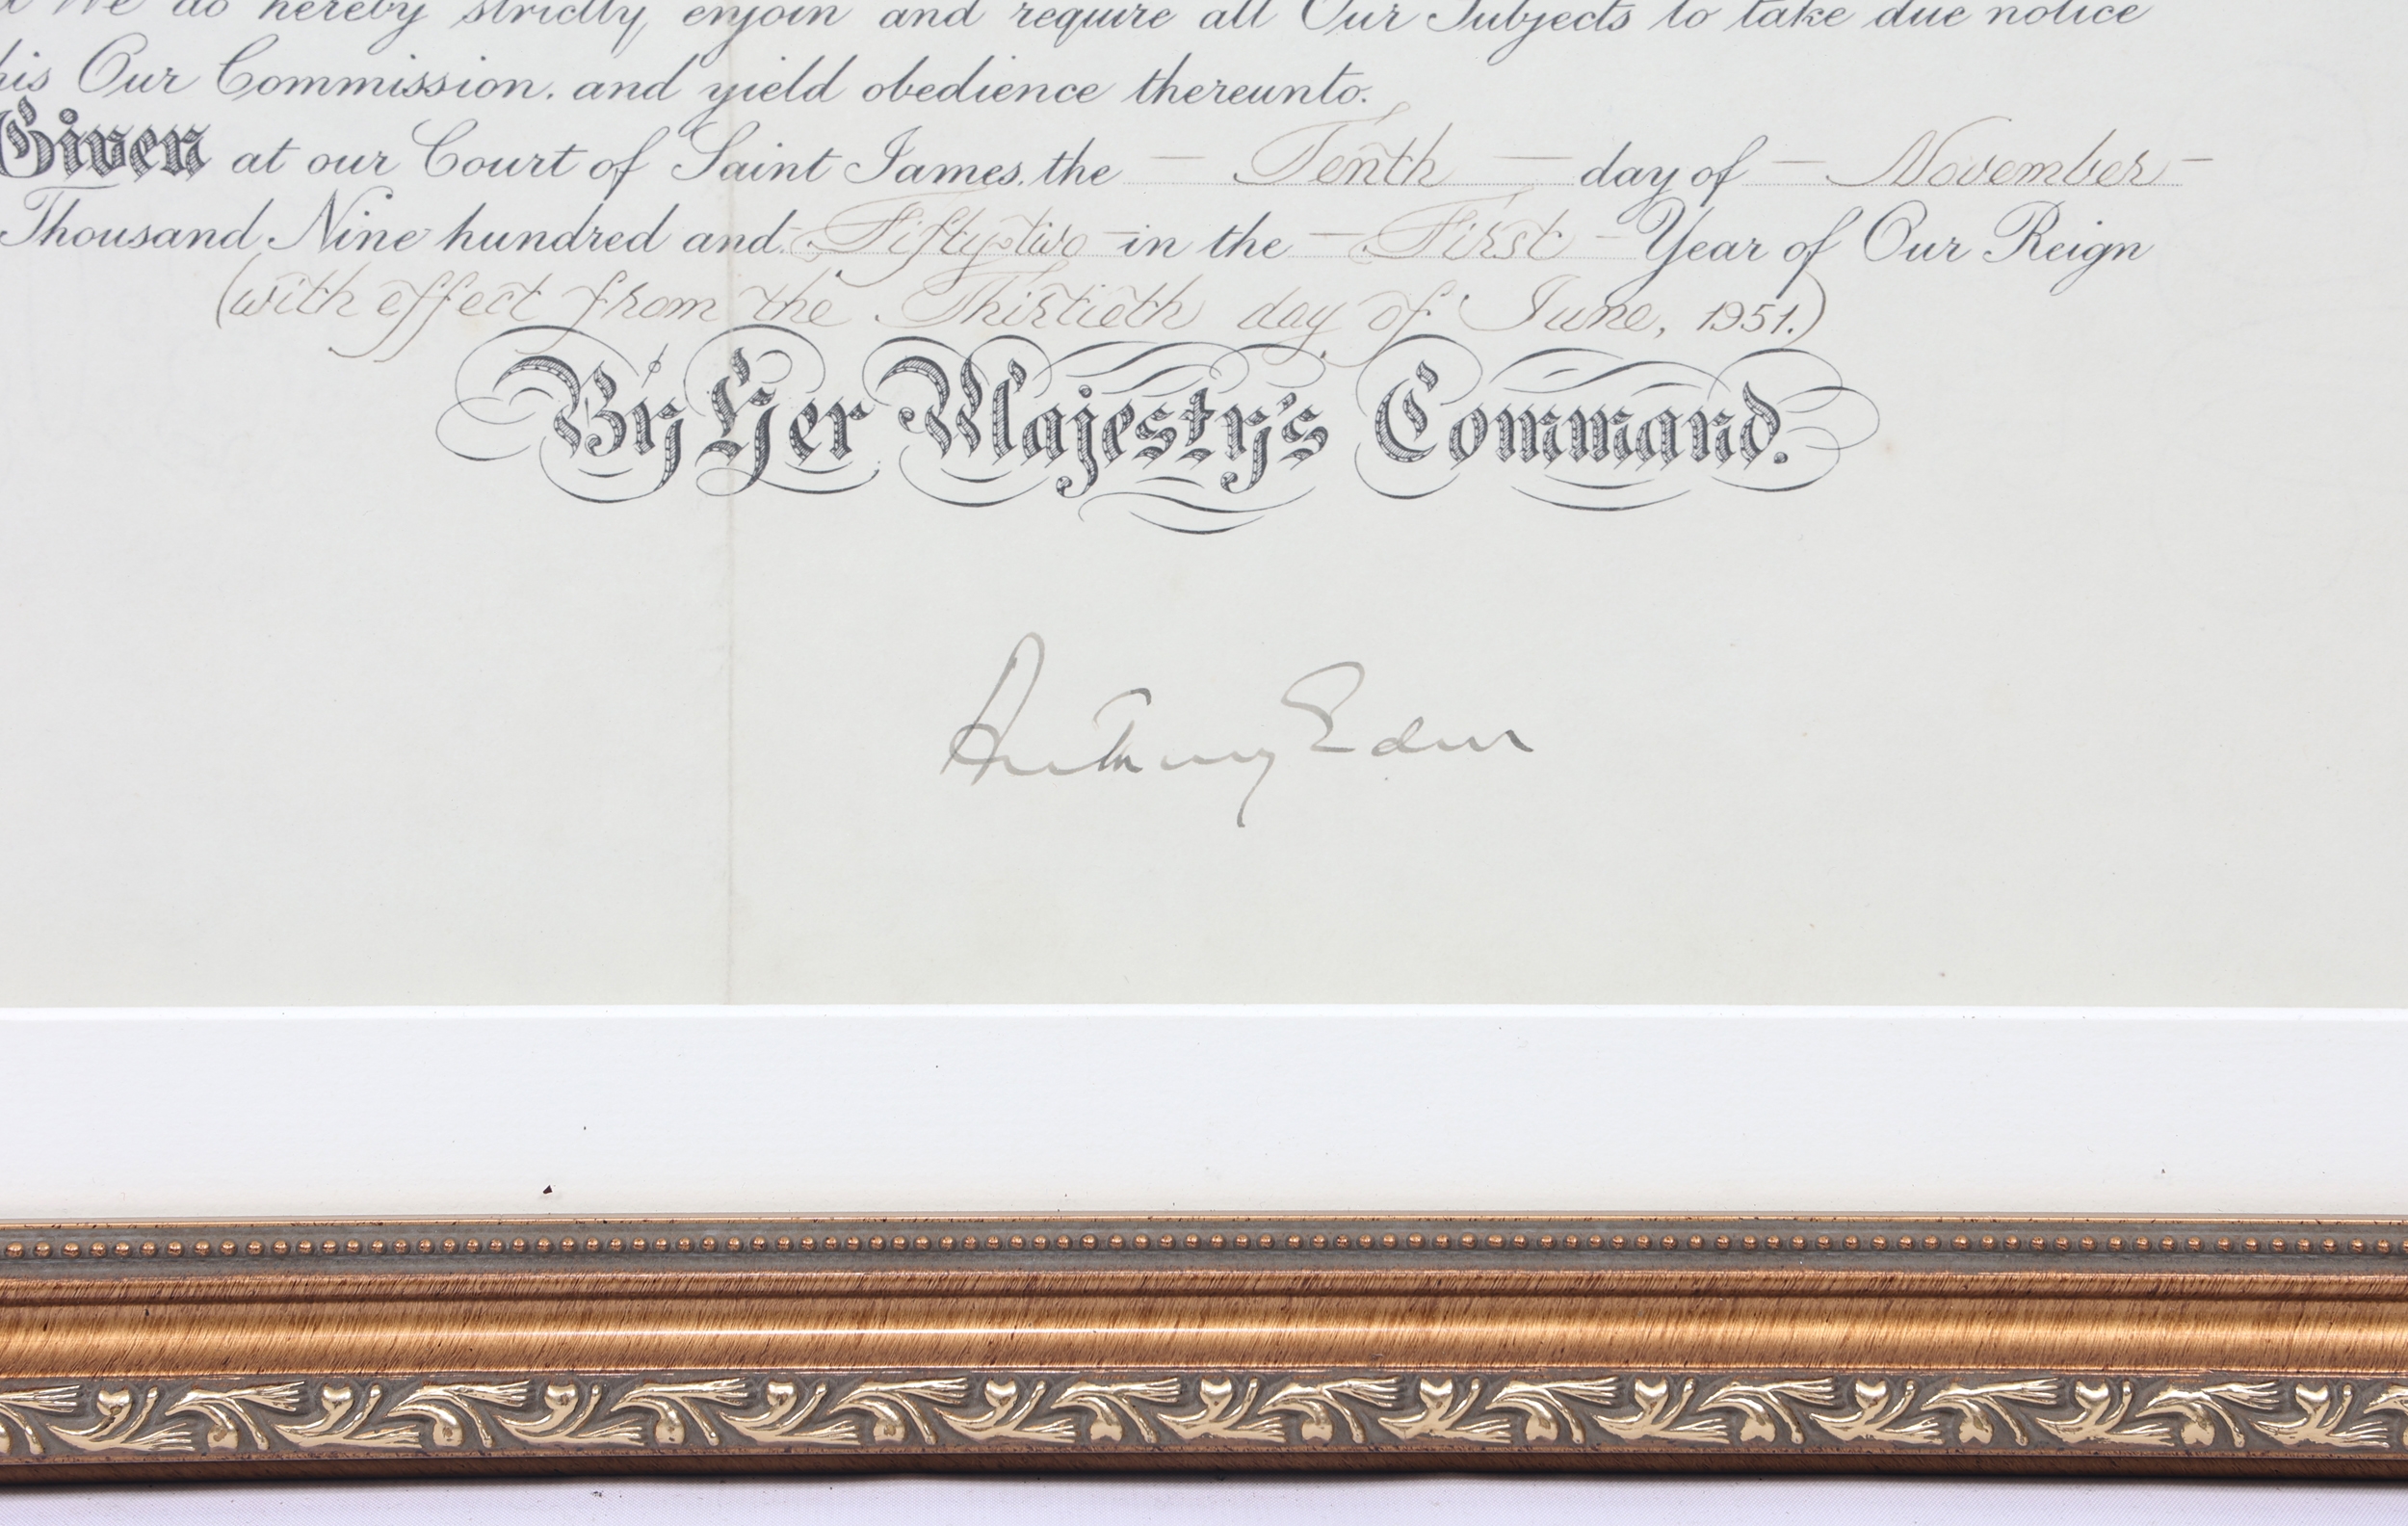 We do hereby strictly enjoin and require all Our Subjects to take due notice
his Our Commission. and yield obedience thereunto.
Given at our Court of Saint James, the — Tenth — day of — November —
Thousand Nine hundred and Fifty-two — in the — First — Year of Our Reign
(with effect from the Thirtieth day of June, 1951.)
By Her Majesty's Command.
Anthony Eden